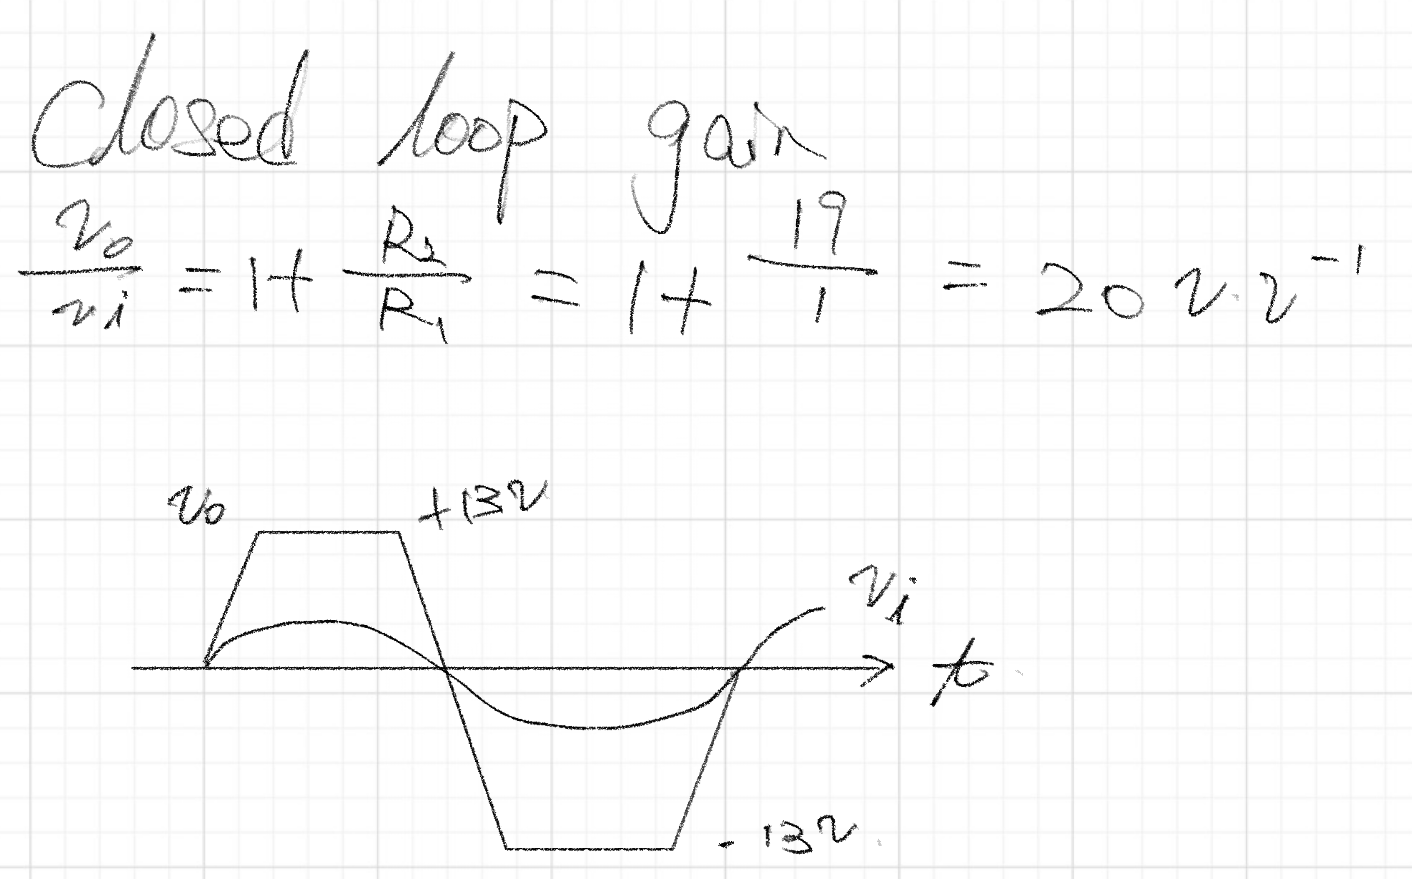 Closed loop gain
vo/vi = 1 + R2/R1 = 1 + 19/1 = 20 v·v⁻¹
vo
+13v
vi
t
-13v